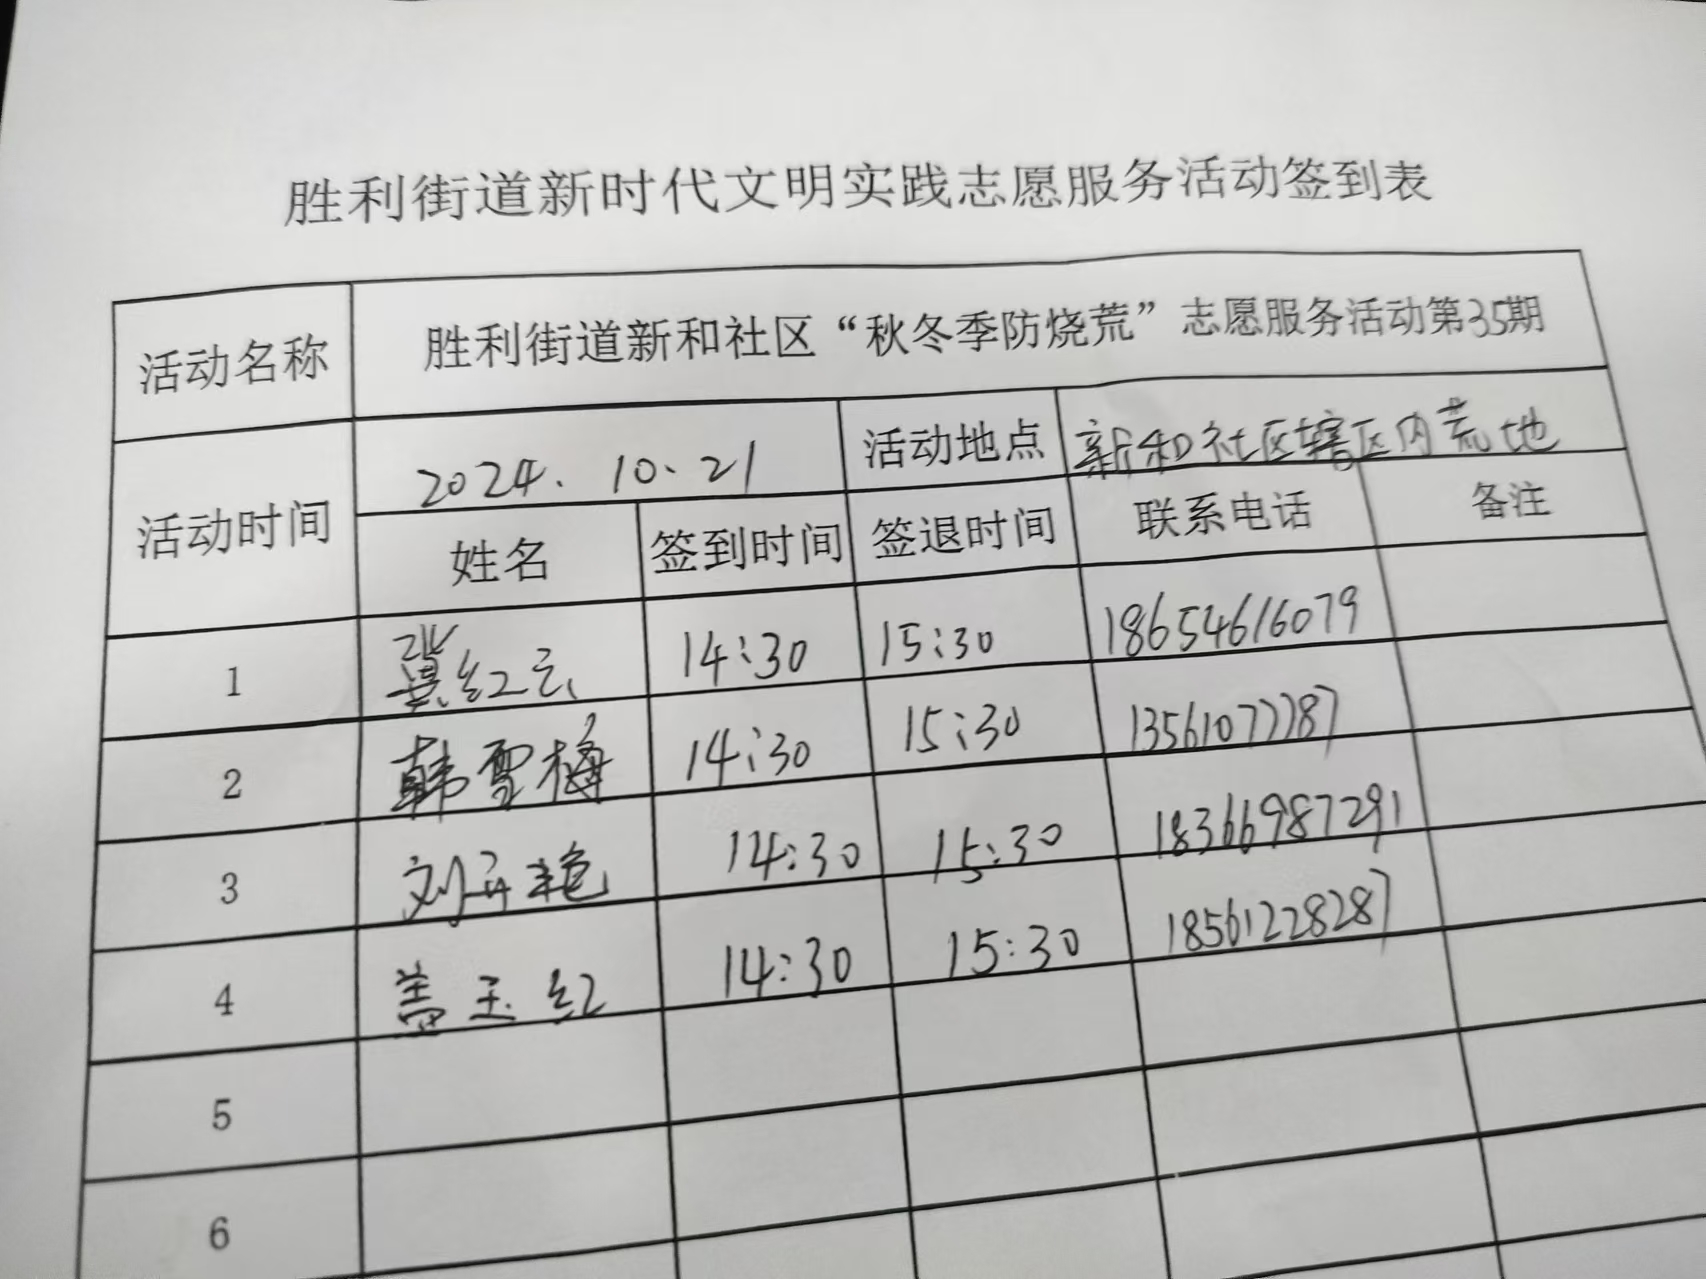 胜利街道新时代文明实践志愿服务活动签到表
活动名称 胜利街道新和社区“秋冬季防烧荒”志愿服务活动第35期
活动时间 2024.10.21 活动地点 新和社区辖区内荒地
姓名 签到时间 签退时间 联系电话 备注
1 冀红云 14:30 15:30 18654616079
2 韩雪梅 14:30 15:30 13561077787
3 刘丹艳 14:30 15:30 18366987291
4 盖玉红 14:30 15:30 18561228287
5
6